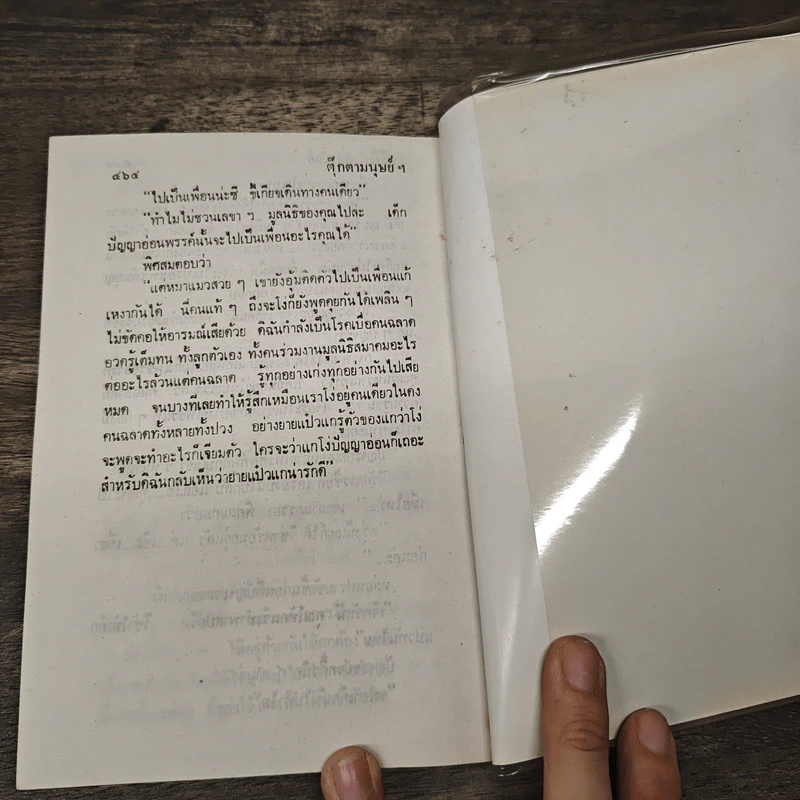 ๔๖๔ ตุ๊กตามนุษย์ ๆ
“ไปเป็นเพื่อนน่ะซี ขี้เกียจเดินทางคนเดียว”
“ทำไมไม่ชวนเลขา ๆ มูลนิธิของคุณไปล่ะ เด็ก
ปัญญาอ่อนพรรค์นั้นจะไปเป็นเพื่อนอะไรคุณได้”
พิศสมตอบว่า
“แต่หมาแมวสวย ๆ เขายังอุ้มติดตัวไปเป็นเพื่อนแก้
เหงากันได้ นี่คนแท้ ๆ ถึงจะโง่ก็ยังพูดคุยกันได้เพลิน ๆ
ไม่ขัดคอให้อารมณ์เสียด้วย ดิฉันกำลังเป็นโรคเบื่อคนฉลาด
อวดรู้เต็มทน ทั้งลูกตัวเอง ทั้งคนร่วมงานมูลนิธิสมาคมอะไร
ต่ออะไรล้วนแต่คนฉลาด รู้ทุกอย่างเก่งทุกอย่างกันไปเสีย
หมด จนบางทีเลยทำให้รู้สึกเหมือนเราโง่อยู่คนเดียวในดง
คนฉลาดทั้งหลายทั้งปวง อย่างยายแป๋วแกรู้ตัวของแกว่าโง่
จะพูดจะทำอะไรก็เจียมตัว ใครจะว่าแกโง่ปัญญาอ่อนก็เถอะ
สำหรับดิฉันกลับเห็นว่ายายแป๋วแกน่ารักดี”